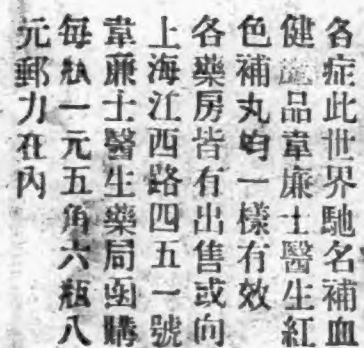 各症此世界馳名補血
健腦品韋廉士醫生紅
色補丸均一樣有效
各藥房皆有出售或向
上海江西路四五一號
韋廉士醫生藥局函購
每瓶一元五角六瓶八
元郵力在內